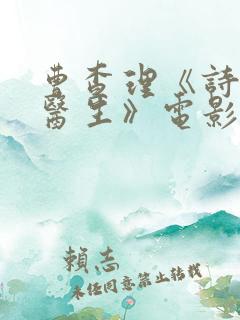 曹查理《詩
醫生》電影
賴志
未任同意禁止轉載